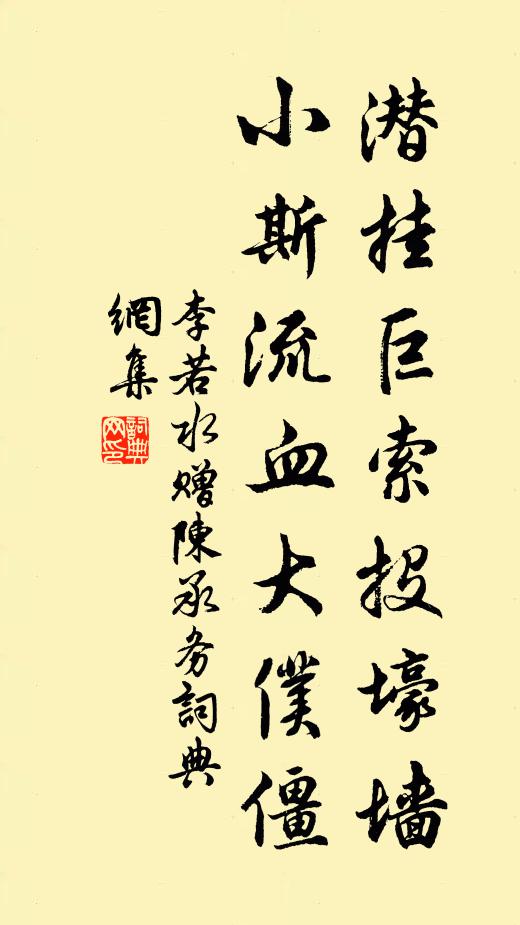 潜挂巨索投壕墙
小斯流血大僕僵
李若水赠陳承务詞典
網集
詞典
网印